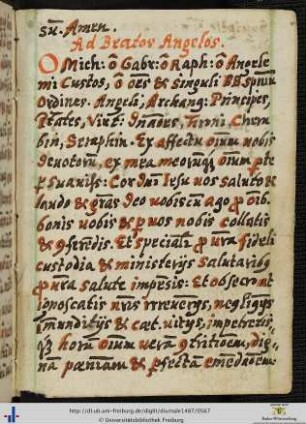 su. Amen.
Ad Beatos Angelos.
O Mich: ô Gabr: ô Raph: ô Angele
mi Custos, ô oēs & singuli BB spūum
Ordines. Angeli, Archang: Principes,
Ptates, Virt: Dnāōes, Throni Cheru
bin, Seraphin. Ex affectu oīum nobis
devotorū, ex mea meorūq oīum pte
p suaviss: Cor dnī Iesu vos saluto &
laudo & grās deo vobiscū ago p oīb.
bonis vobis & p vos nobis collatis
& 9feredis. Et speciali p vra fideli
custodia & ministerijs salutaribq
p vra salute impēsis: Et obsecro ut
ignoscatis nris irreverēs, negligtijs
imunditijs & cæt. vitijs, impetretis
q horū oīum verā 9tritioem, dig
nā pœnitām & pfectā emēdaōem.
http://dl.ub.uni-freiburg.de/diglit/diurnale1487/0567
© Universitätsbibliothek Freiburg
Baden-Württemberg